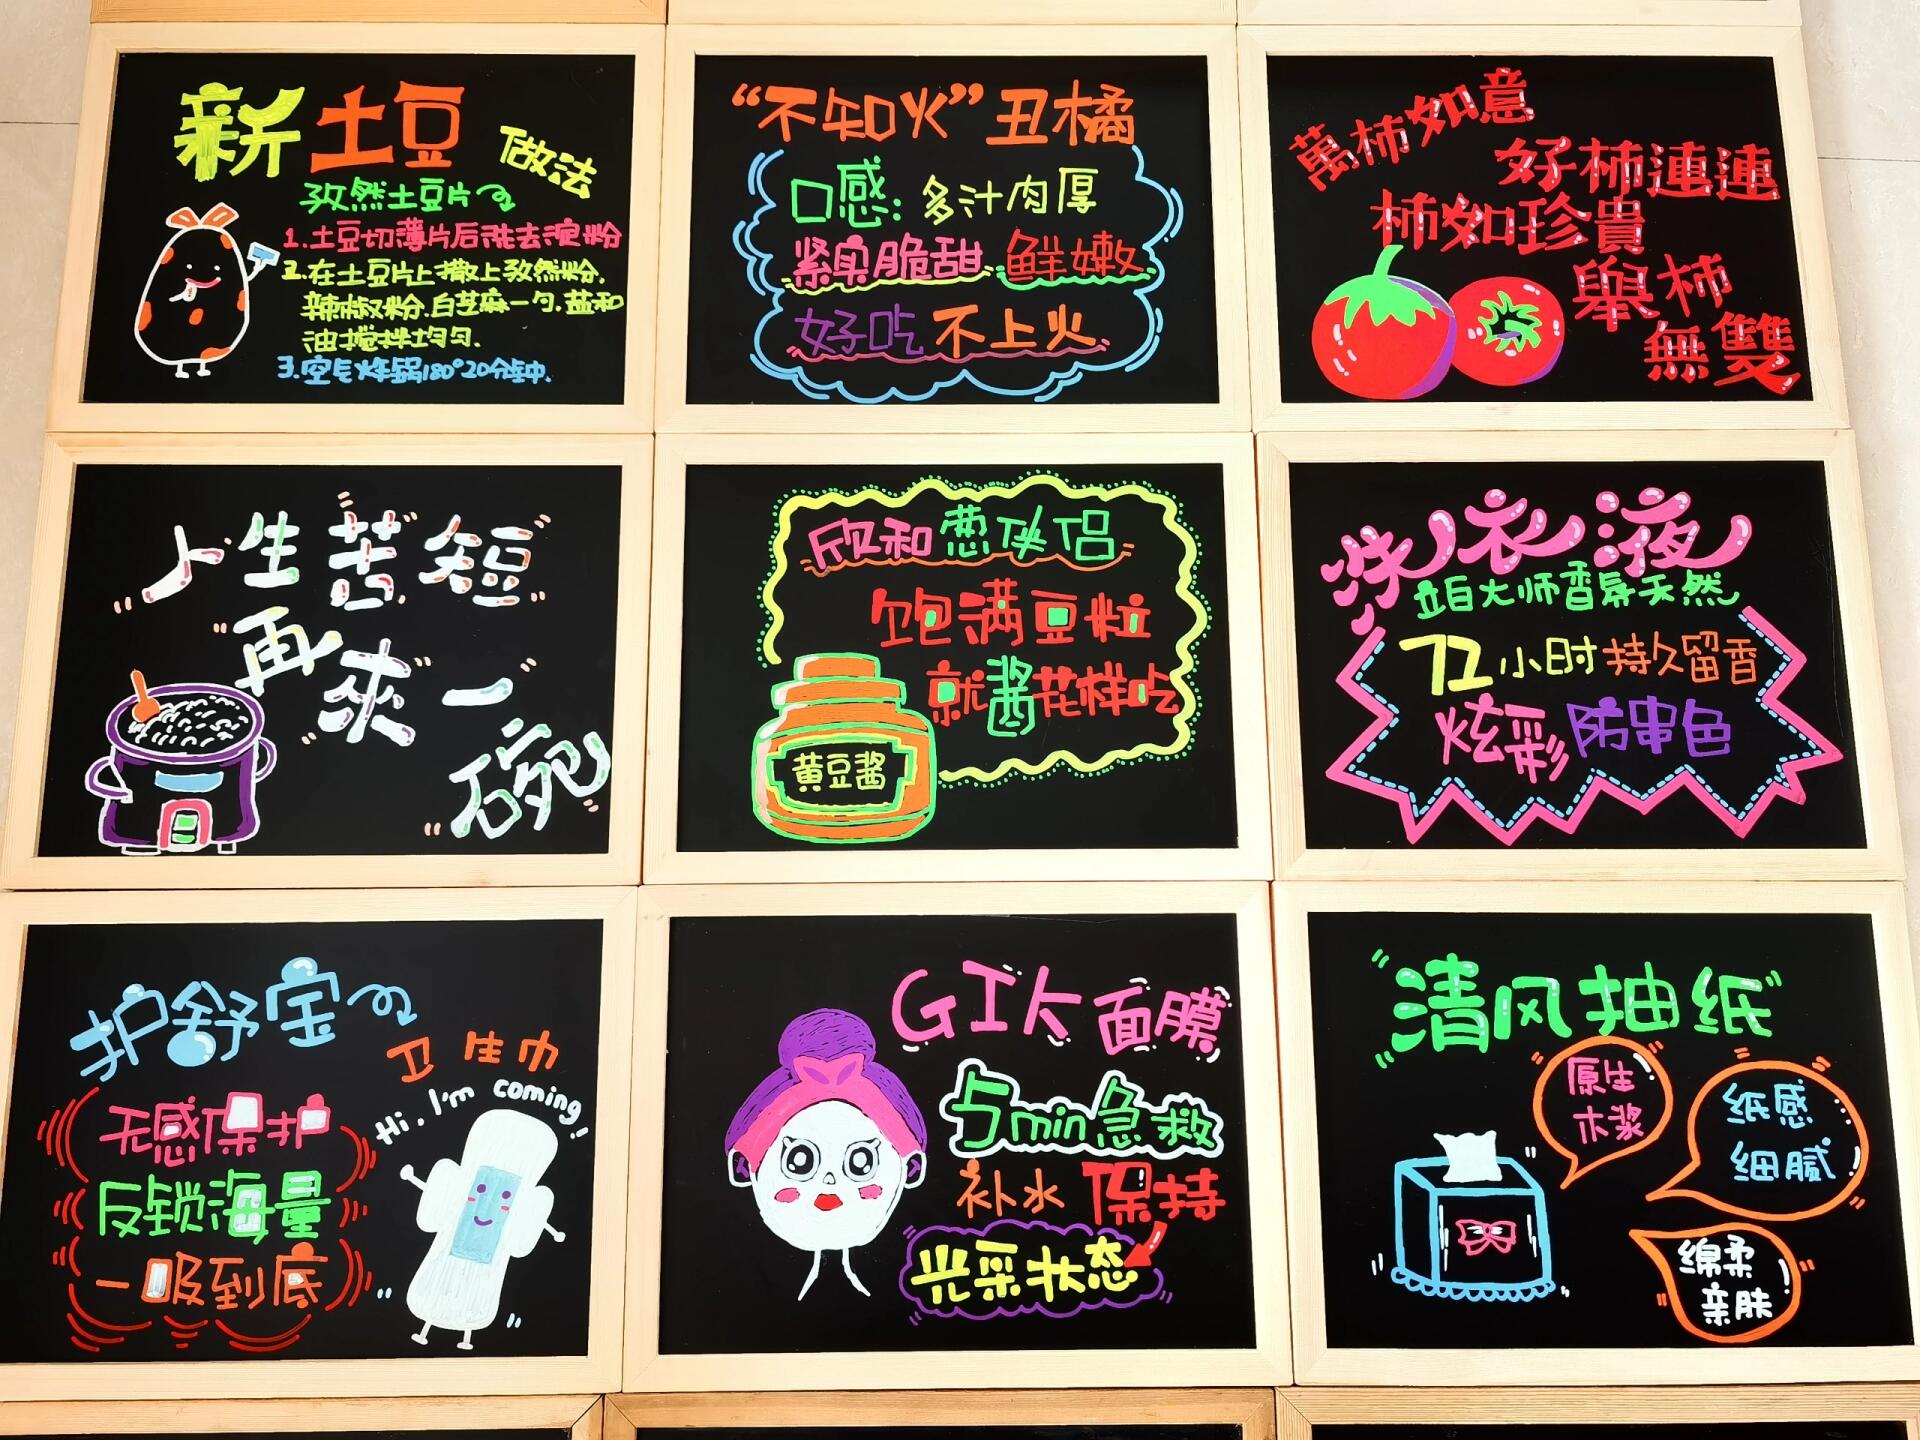 新土豆 做法
孜然土豆片
1.土豆切薄片后洗去淀粉
2.在土豆片上撒上孜然粉.
辣椒粉.白芝麻一勺.盐和
油搅拌均匀.
3.空气炸锅180°20分钟.
“不知火”丑橘
口感:多汁肉厚
紧实脆甜 鲜嫩
好吃不上火
萬柿如意
好柿連連
柿如珍貴
舉柿
無雙
人生苦短
再來一
碗
欣和葱伴侣
饱满豆粒
就酱花样吃
黄豆酱
洗衣液
立白大师香氛天然
72小时持久留香
炫彩防串色
护舒宝
卫生巾
Hi, I'm coming!
无感保护
反锁海量
一吸到底
GIK面膜
5min急救
补水保持
光采状态
清风抽纸
原生
木浆
纸感
细腻
绵柔
亲肤